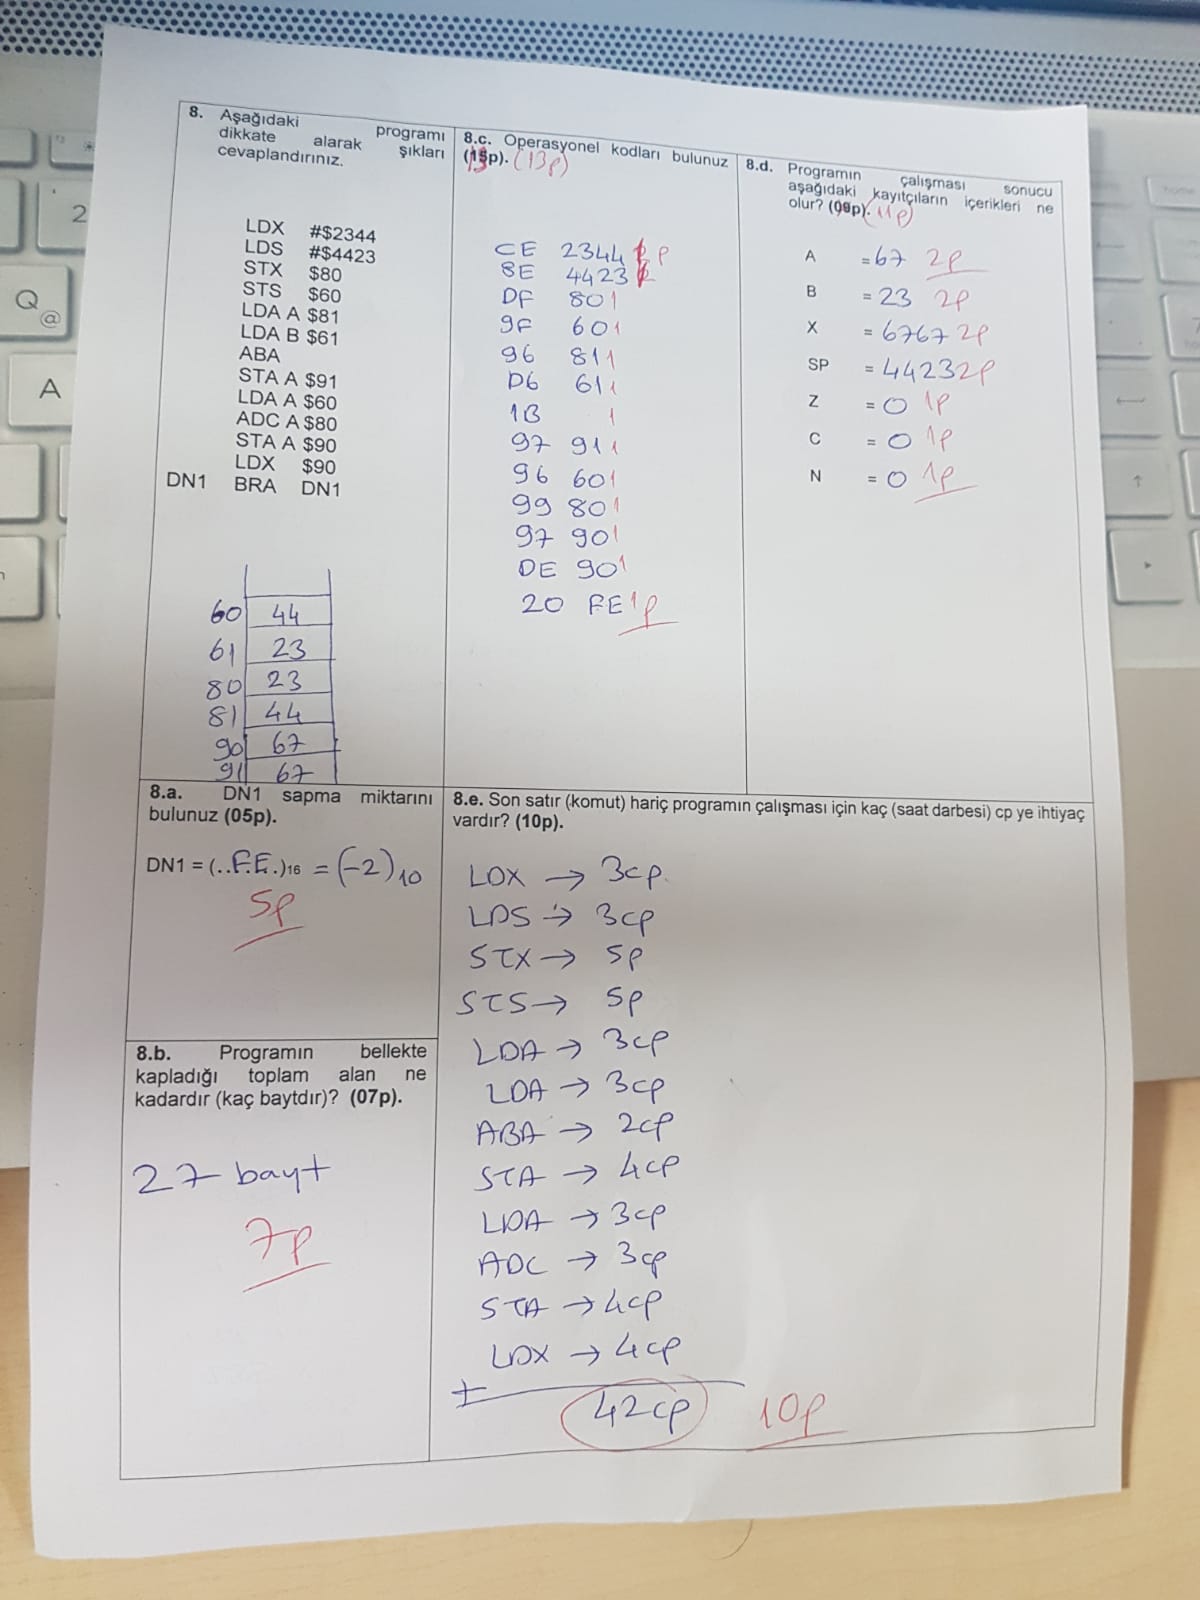 8. Aşağıdaki programı
dikkate alarak şıkları
cevaplandırınız.
LDX #$2344
LDS #$4423
STX $80
STS $60
LDA A $81
LDA B $61
ABA
STA A $91
LDA A $60
ADC A $80
STA A $90
LDX $90
DN1 BRA DN1
60 44
61 23
80 23
81 44
90 67
91 67
8.c. Operasyonel kodları bulunuz
(13p). (13p)
CE 2344 p
8E 4423
DF 80 1
9F 60 1
96 81 1
D6 61 1
1B 1
97 91 1
96 60 1
99 80 1
97 90 1
DE 90 1
20 FE 1p
8.d. Programın çalışması sonucu
aşağıdaki kayıtçıların içerikleri ne
olur? (09p). (11p)
A =67 2p
B = 23 2p
X = 6767 2p
SP = 4423 2p
Z = 0 1p
C = 0 1p
N = 0 1p
8.a. DN1 sapma miktarını
bulunuz (05p).
DN1 = (..F.E.)16 = (-2)10
5p
8.b. Programın bellekte
kapladığı toplam alan ne
kadardır (kaç baytdır)? (07p).
27 bayt
7p
8.e. Son satır (komut) hariç programın çalışması için kaç (saat darbesi) cp ye ihtiyaç
vardır? (10p).
LDX → 3cp.
LDS → 3cp
STX → 5p
STS → 5p
LDA → 3cp
LDA → 3cp
ABA → 2cp
STA → 4cp
LDA → 3cp
ADC → 3cp
STA → 4cp
LDX → 4cp
+
42cp 10p